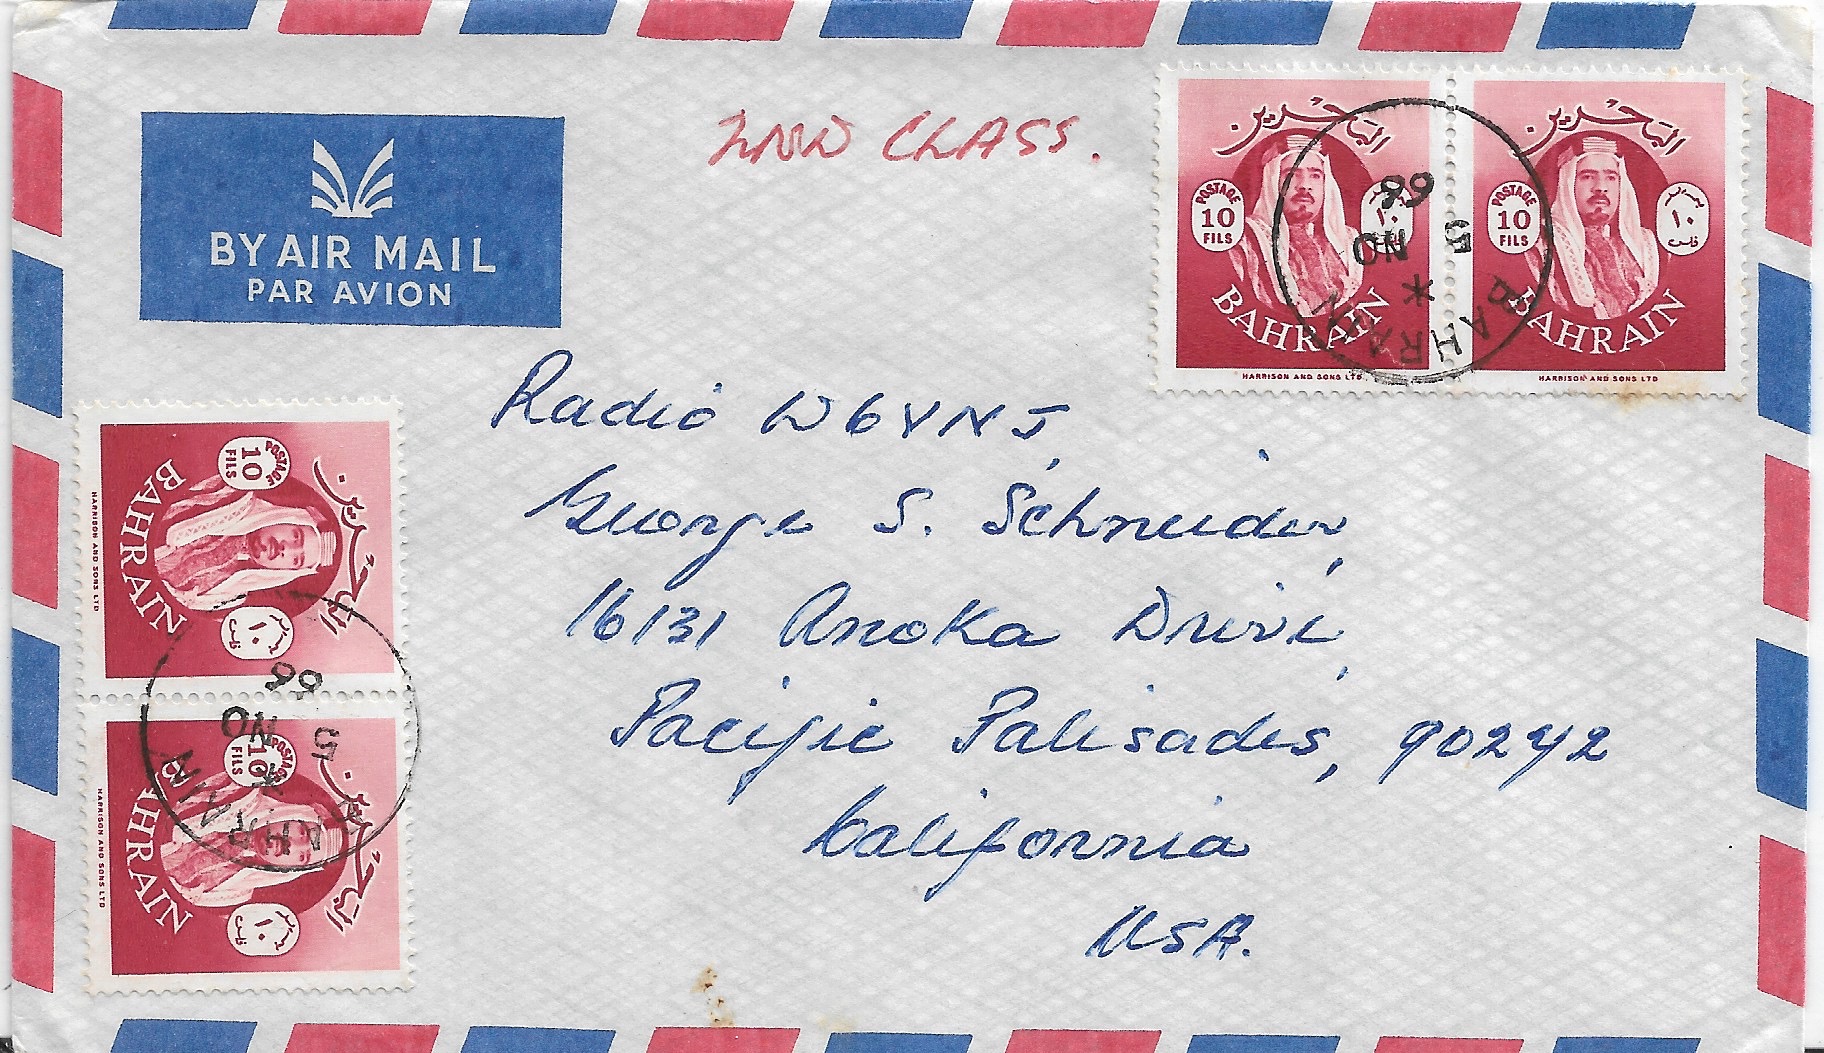 2ND CLASS.
BY AIR MAIL
PAR AVION
البحرين
POSTAGE
10
FILS
١٠
فلس
BAHRAIN
HARRISON AND SONS LTD
البحرين
POSTAGE
10
FILS
١٠
فلس
BAHRAIN
HARRISON AND SONS LTD
BAHRAIN
*
5 NO
66
Radio W6YNJ,
George S. Schneider,
16131 Anoka Drive,
Pacific Palisades, 90242
California
USA.
البحرين
POSTAGE
10
FILS
١٠
فلس
BAHRAIN
HARRISON AND SONS LTD
البحرين
POSTAGE
10
FILS
١٠
فلس
BAHRAIN
HARRISON AND SONS LTD
BAHRAIN
*
5 NO
66